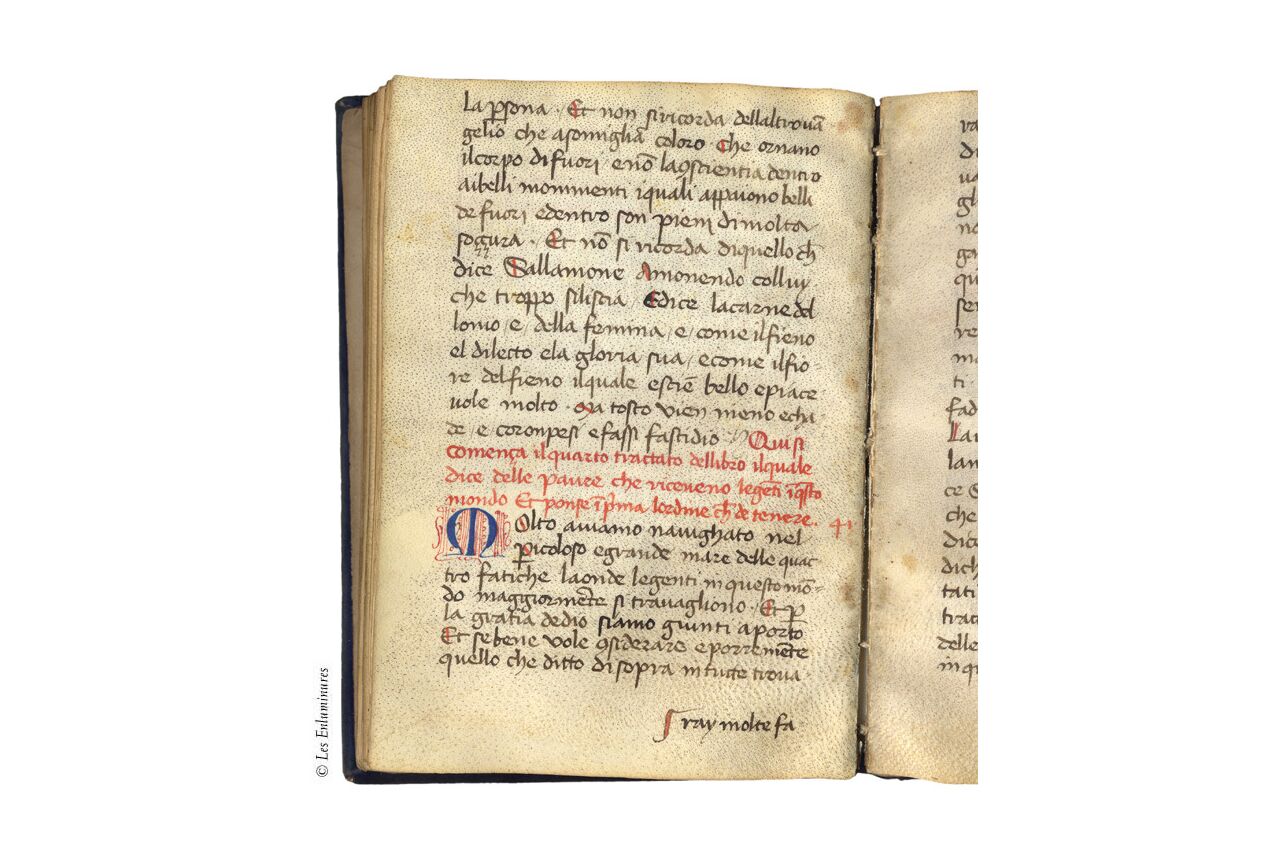 La ꝑsona · Et non si ricorda dellaltrouā
gelio che asomigliā coloro che ornano
il corpo di fuori e nō la ꝯscientia dentro
ai belli monimenti i quali appaiono belli
de fuori e dentro son pieni di molta
sozzura · Et nō si ricorda di quello ch̄
dice Sallamone Amonendo colluy
che troppo si liscia Edice la carne del
lomo / e / della femina / e / come il fieno
el dilecto e la gloria sua / e come il fio-
re del fieno il quale escie bello e piace
uole molto · Ma tosto vien meno e cha
de / e coronpesi e fassi fastidio Qui si
comença il quarto tractato del libro il quale
dice delle paure che riceveno le genti ī q̄sto
mondo Et ponse ī pͥma lordine ch̄ de tenere.
Molto aviamo navighato nel
ꝑicoloso e grande mare delle quat
tro fatiche laonde le genti in questo mō-
do maggiormēte si travagliono · Et ꝑ
la gratia de dio siamo giunti a porto
Et se bene vole ꝯsiderare e porre mēte
quello che ditto di sopra in tutte trova
ray molte fa
© Les Enluminures